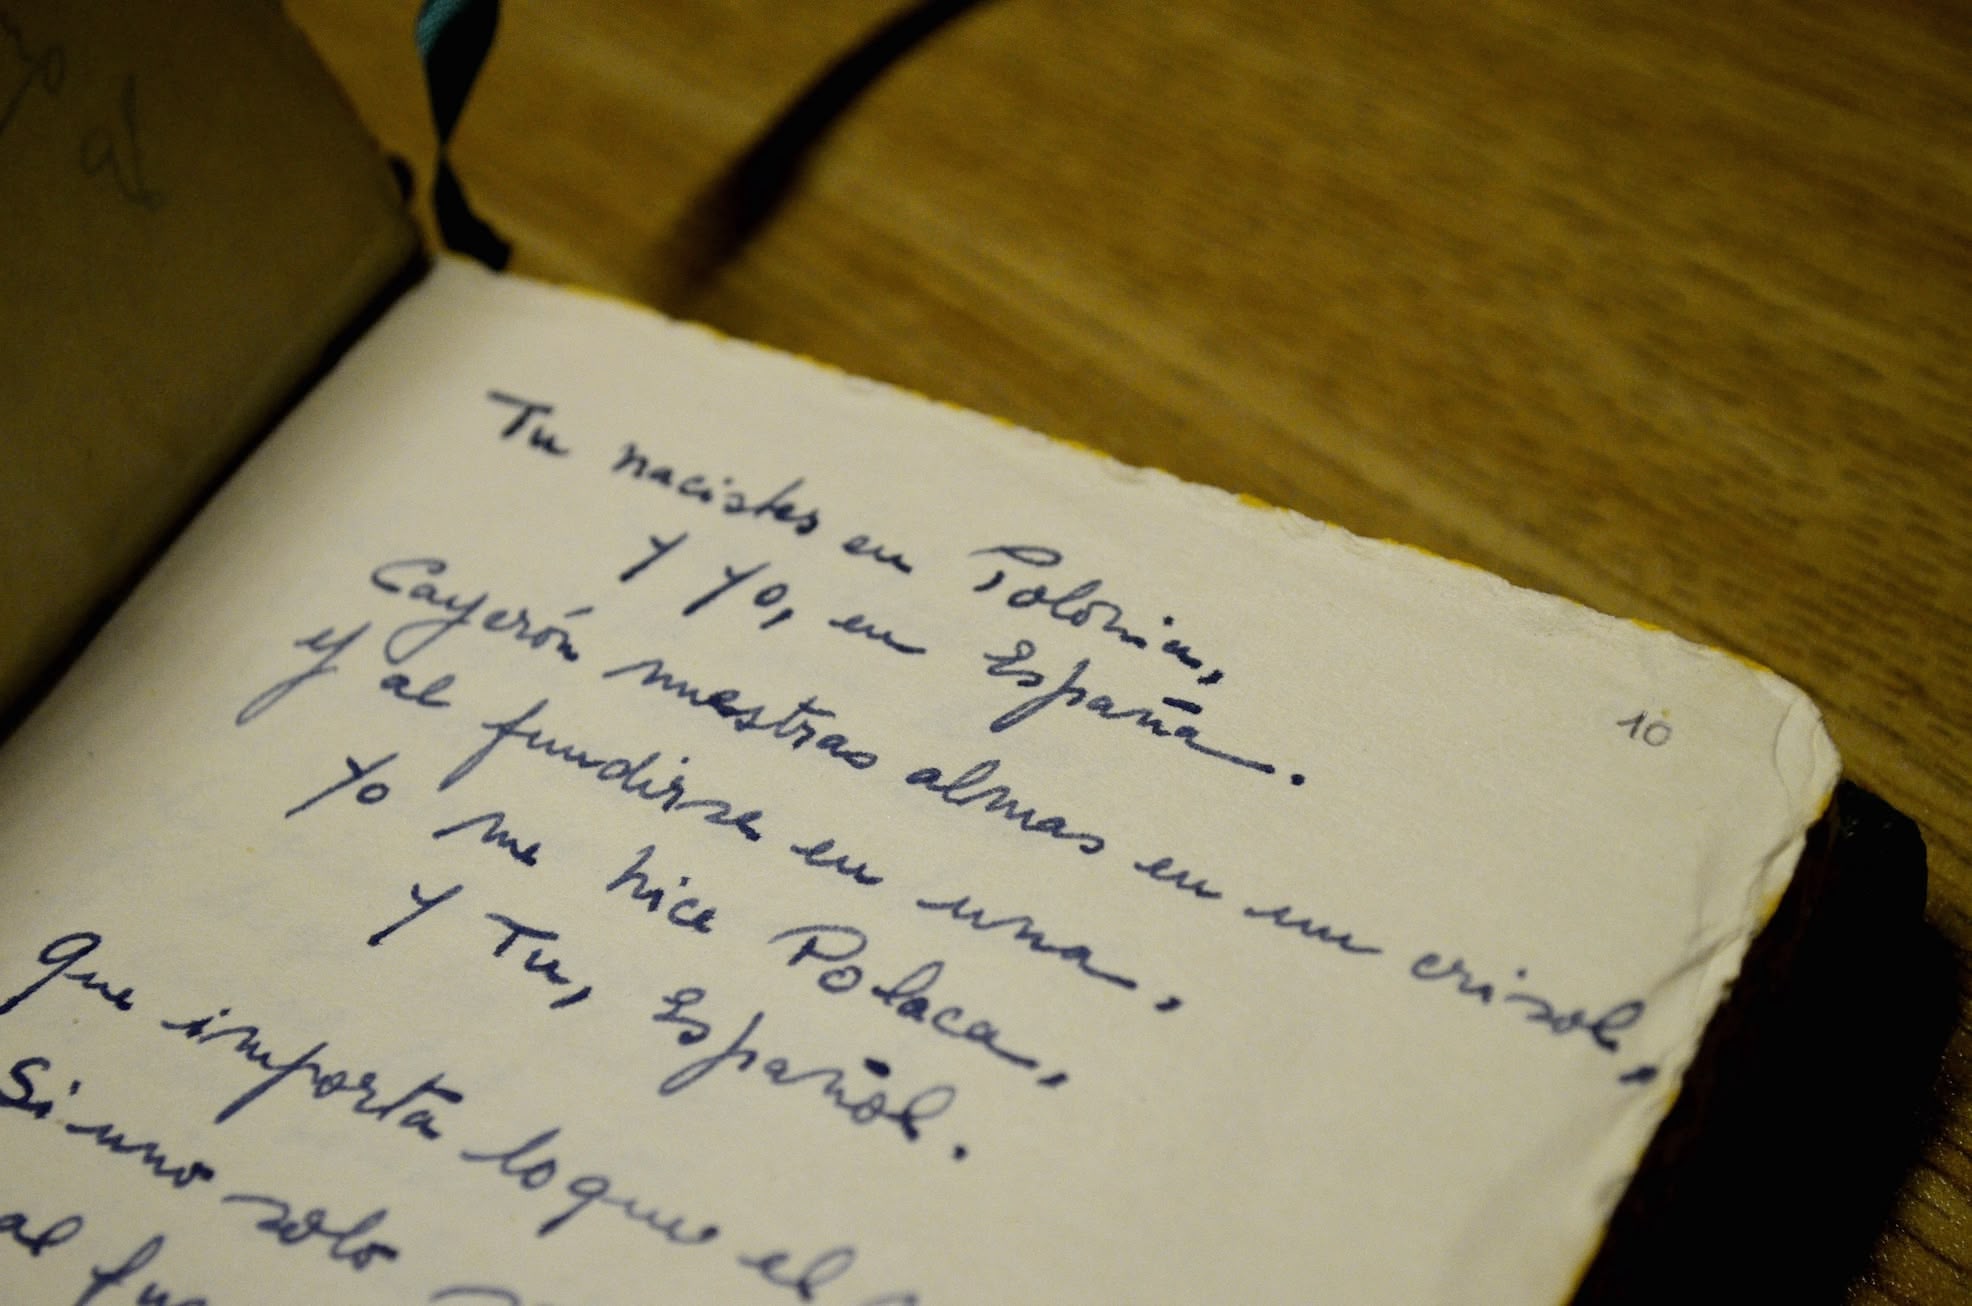 10
Tu nacistes en Polonia,
y yo, en España.
Cayerón nuestras almas en un crisol,
y al fundirse en una,
yo me hice Polaca,
y Tu, Español.
Que importa loque el
Si uno solo
al fu